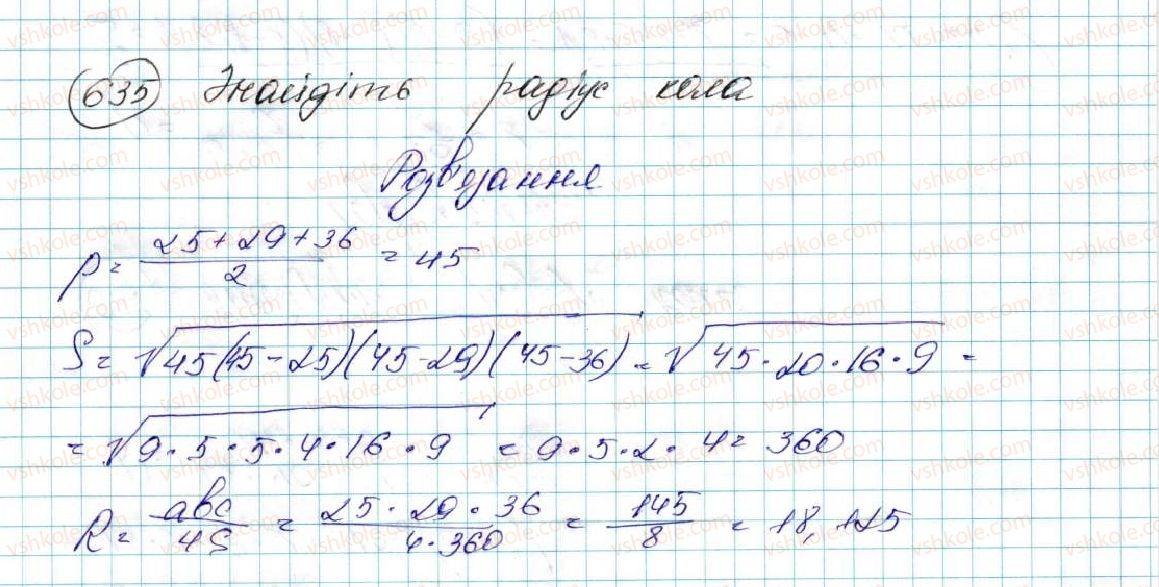 635 Знайдіть радіус кола
Розв'язання
p = (25+29+36)/2 = 45
S = √(45(45-25)(45-29)(45-36)) = √(45·20·16·9) =
= √(9·5·5·4·16·9) = 9·5·2·4 = 360
R = abc/4S = (25·29·36)/(4·360) = 145/8 = 18,125